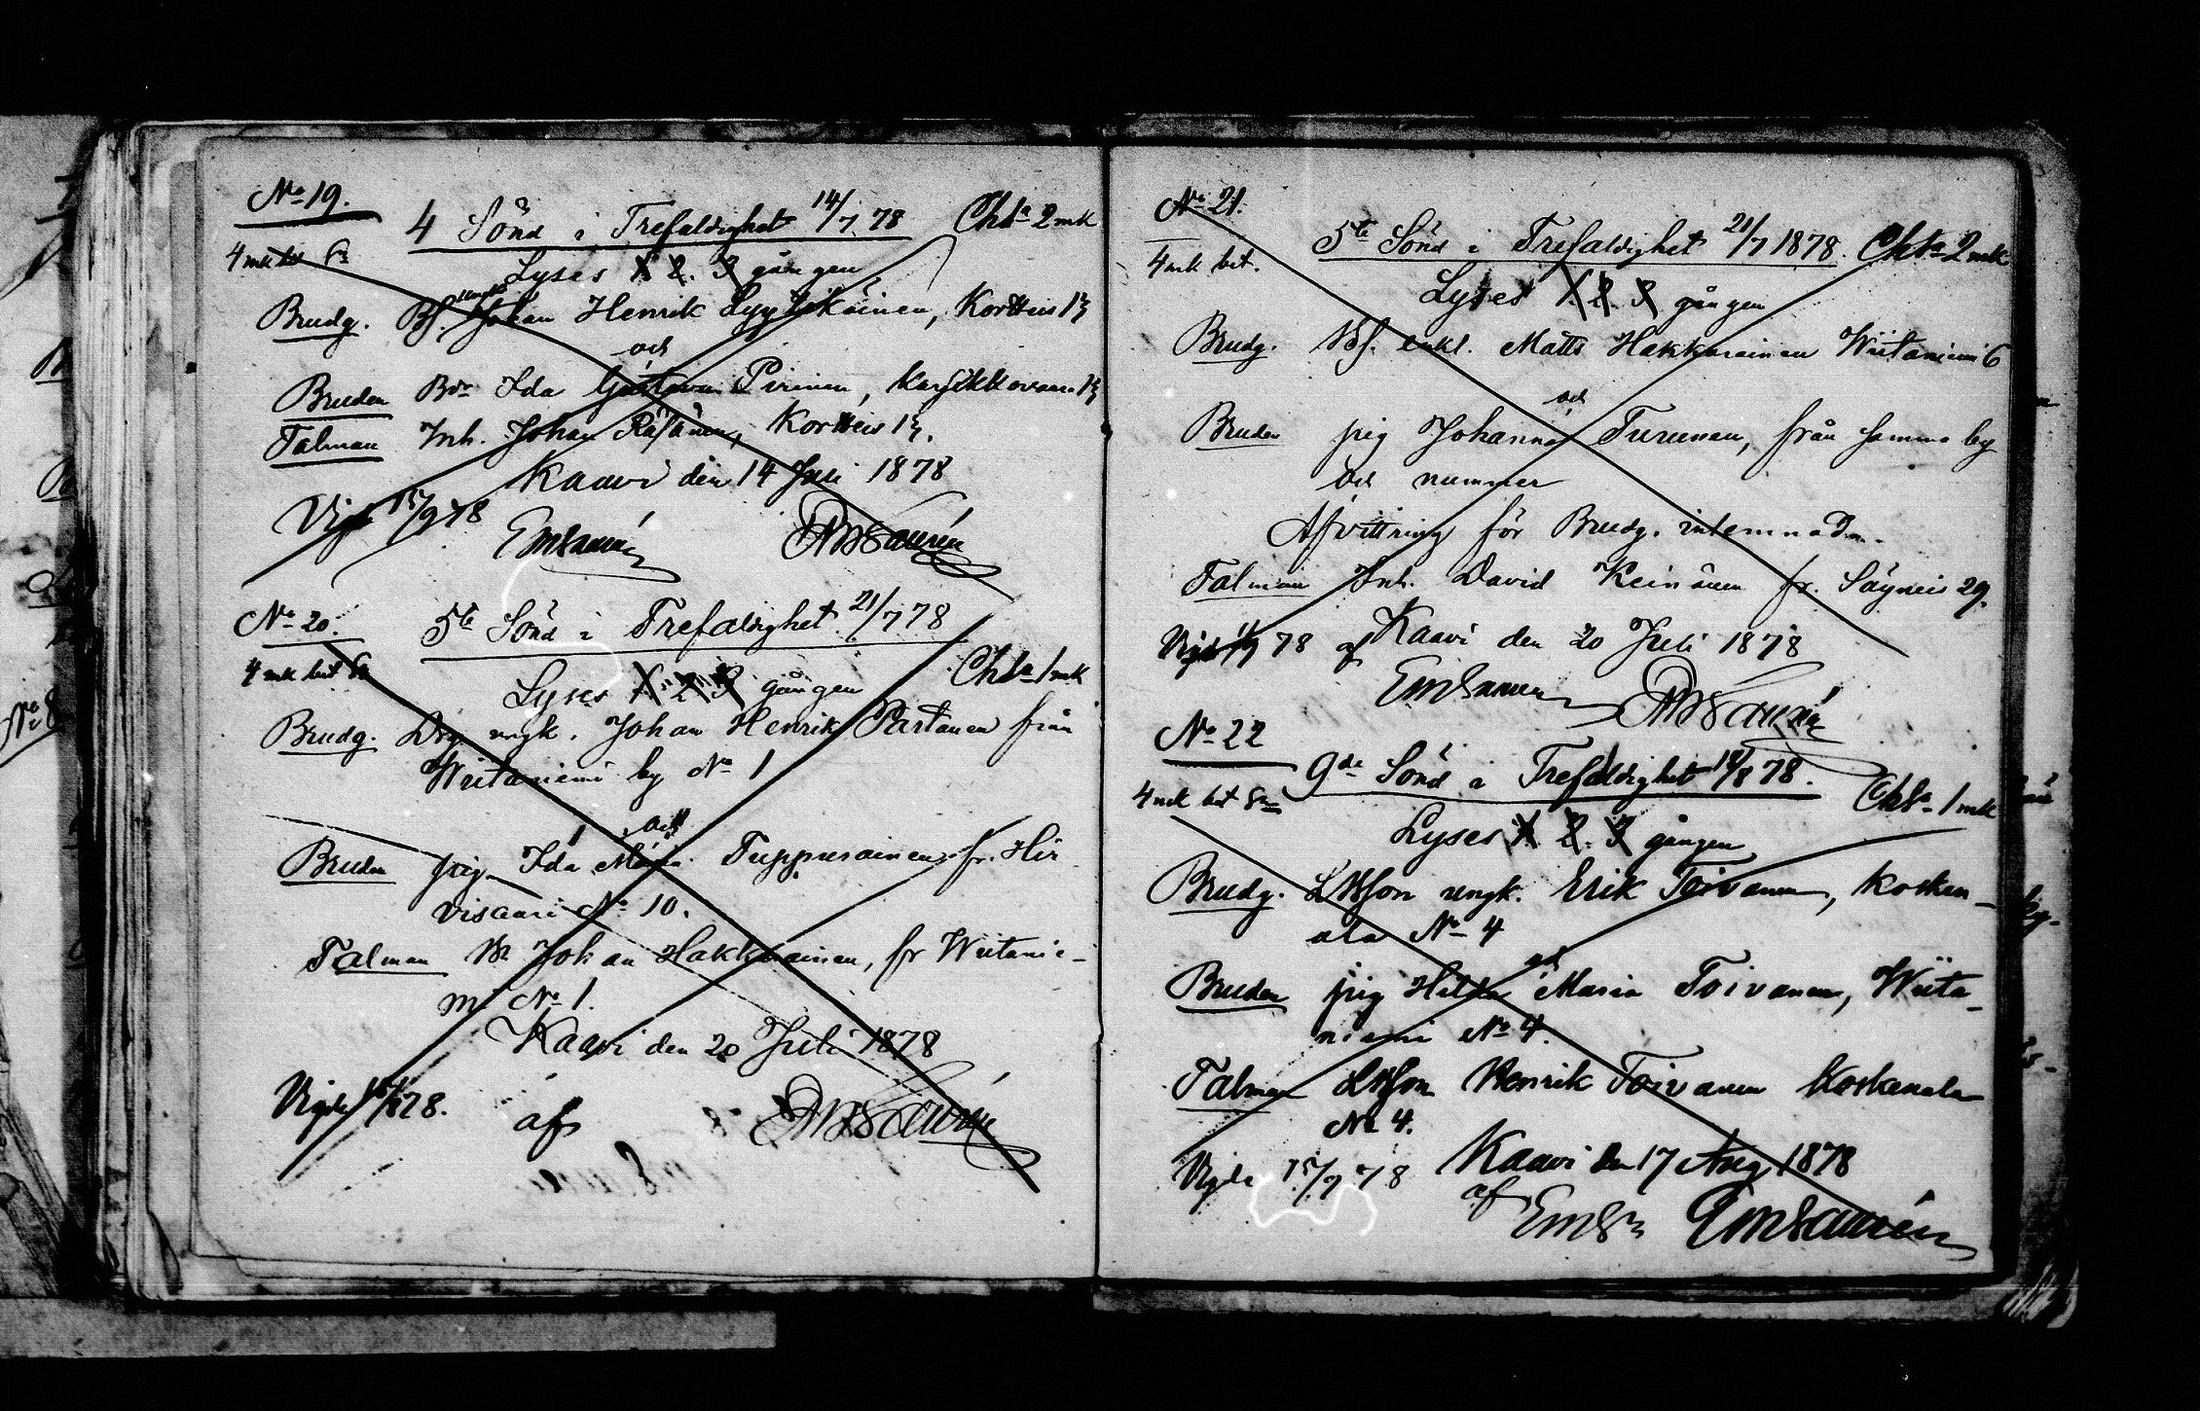 No 19.
4 Sönd i Trefaldighet 14/7 78 Chta 2 mk
4 mk bet
Lyses 1. 2. 3 gången
Brudg. Bs. Johan Henrik Lyytikäinen, Kortteis 13
och
Bruden Bdr Ida Gustava Pirinen, Karsikkovaara 13
Talman Inh. Johan Räsänen, Kortteis 13.
Kaavi den 14 Juli 1878
Vigde 15/9 78
EmSaurén
No 20.
5te Sönd i Trefaldighet 21/7 78
4 mk bet
Chta 1 mk
Lyses 1 2 3 gången
Brudg. Drg. ungk. Johan Henrik Partanen från
Wiitaniemi by No 1
och
Bruden pig. Ida Maria Tuppurainen fr. Hir
visaari No 10.
Talman Johan Hakkarainen, fr Wiitanie-
mi No 1.
Kaavi den 20 Juli 1878
Vigde /8 78.
af
No 21.
5te Sönd i Trefaldighet 21/7 1878. Chta 2 mk
4 mk bet.
Lyses 1. 2. 3 gången
Brudg. Bs. enkl. Matts Hakkarainen Wiitaniemi 6
och
Bruden pig Johanna Turunen, från samma by
och nummer
Afvittring för Brudg. inlemnad.
Talman Inh. David Keinänen fr. Säyneis 29.
Vigde 78 af Kaavi den 20 Juli 1878
EmSauren
No 22
9de Sönd i Trefaldighet 18/8 78.
4 mk bet
Chta 1 mk
Lyses 1. 2. 3 gången
Brudg. LBson ungk. Erik Toivanen, Kosken-
ala No 4
och
Bruden pig Hilda Maria Toivanen, Wiita-
niemi No 4.
Talman LBson Henrik Toivanen Koskenala
No 4.
Kaavi den 17 Aug 1878
Vigde 15/9 78
af
EmSaurén